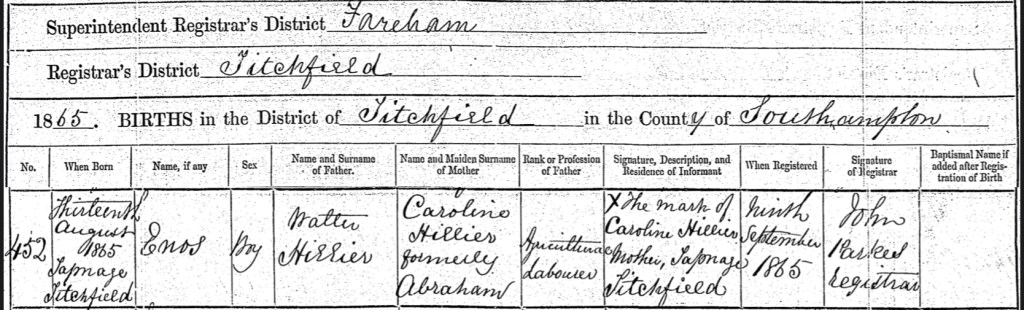 Superintendent Registrar's District Fareham
Registrar's District Titchfield
1865. BIRTHS in the District of Titchfield in the County of Southampton
No. When Born Name, if any Sex Name and Surname of Father. Name and Maiden Surname of Mother Rank or Profession of Father Signature, Description, and Residence of Informant When Registered Signature of Registrar Baptismal Name if added after Registration of Birth
452
Thirteenth
August
1865
Sapnage
Titchfield
Enos
Boy
Walter
Hillier
Caroline
Hillier
formerly
Abraham
Agricultural
Labourer
X The mark of
Caroline Hillier
Mother, Sapnage
Titchfield
Ninth
September
1865
John
Parkes
Registrar